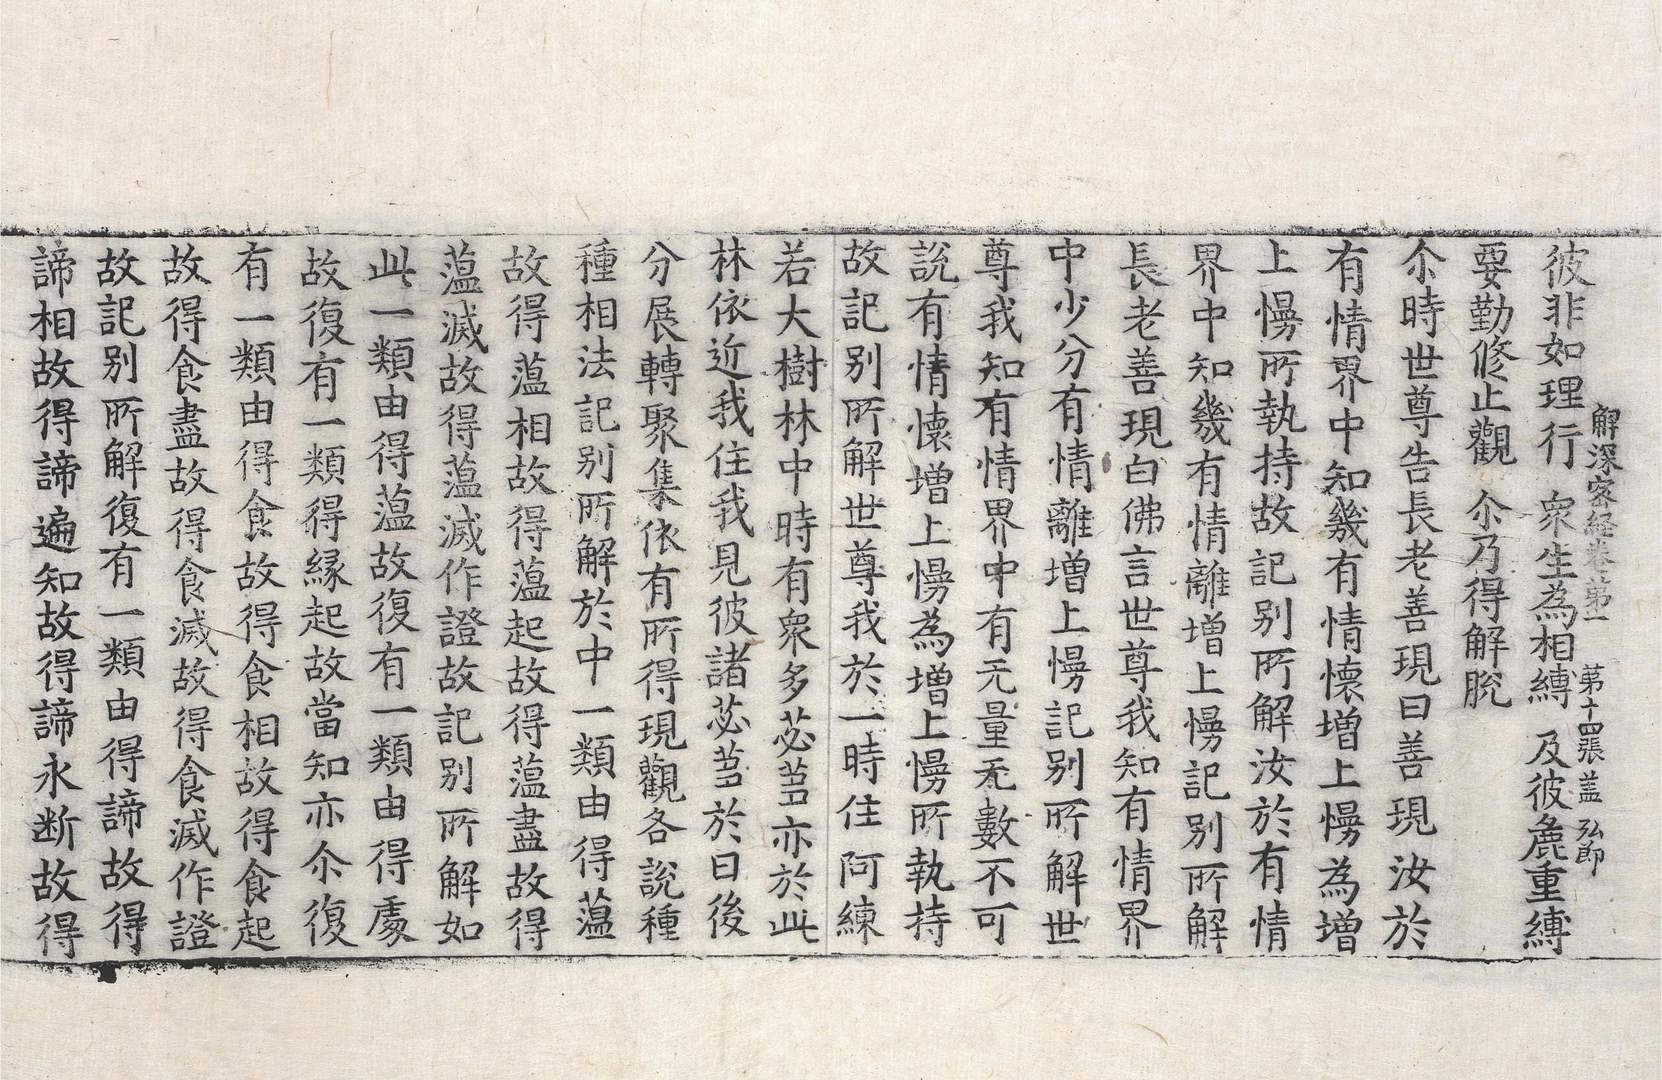 解深密経卷第一 第十四張 盖 弘節
彼非如理行 衆生為相縛 及彼麁重縛
要勤修止觀 尒乃得解脫
尒時世尊告長老善現曰善現汝於
有情界中知幾有情懷增上慢為增
上慢所執持故記别所解汝於有情
界中知幾有情離增上慢記别所解
長老善現白佛言世尊我知有情界
中少分有情離增上慢記别所解世
尊我知有情界中有无量无數不可
說有情懷增上慢為增上慢所執持
故記别所解世尊我於一時住阿練
若大樹林中時有衆多苾芻亦於此
林依近我住我見彼諸苾芻於日後
分展轉聚集依有所得現觀各說種
種相法記别所解於中一類由得薀
故得薀相故得薀起故得薀盡故得
薀滅故得薀滅作證故記别所解如
此一類由得薀故復有一類由得處
故復有一類得縁起故當知亦尒復
有一類由得食故得食相故得食起
故得食盡故得食滅故得食滅作證
故記别所解復有一類由得諦故得
諦相故得諦遍知故得諦永断故得